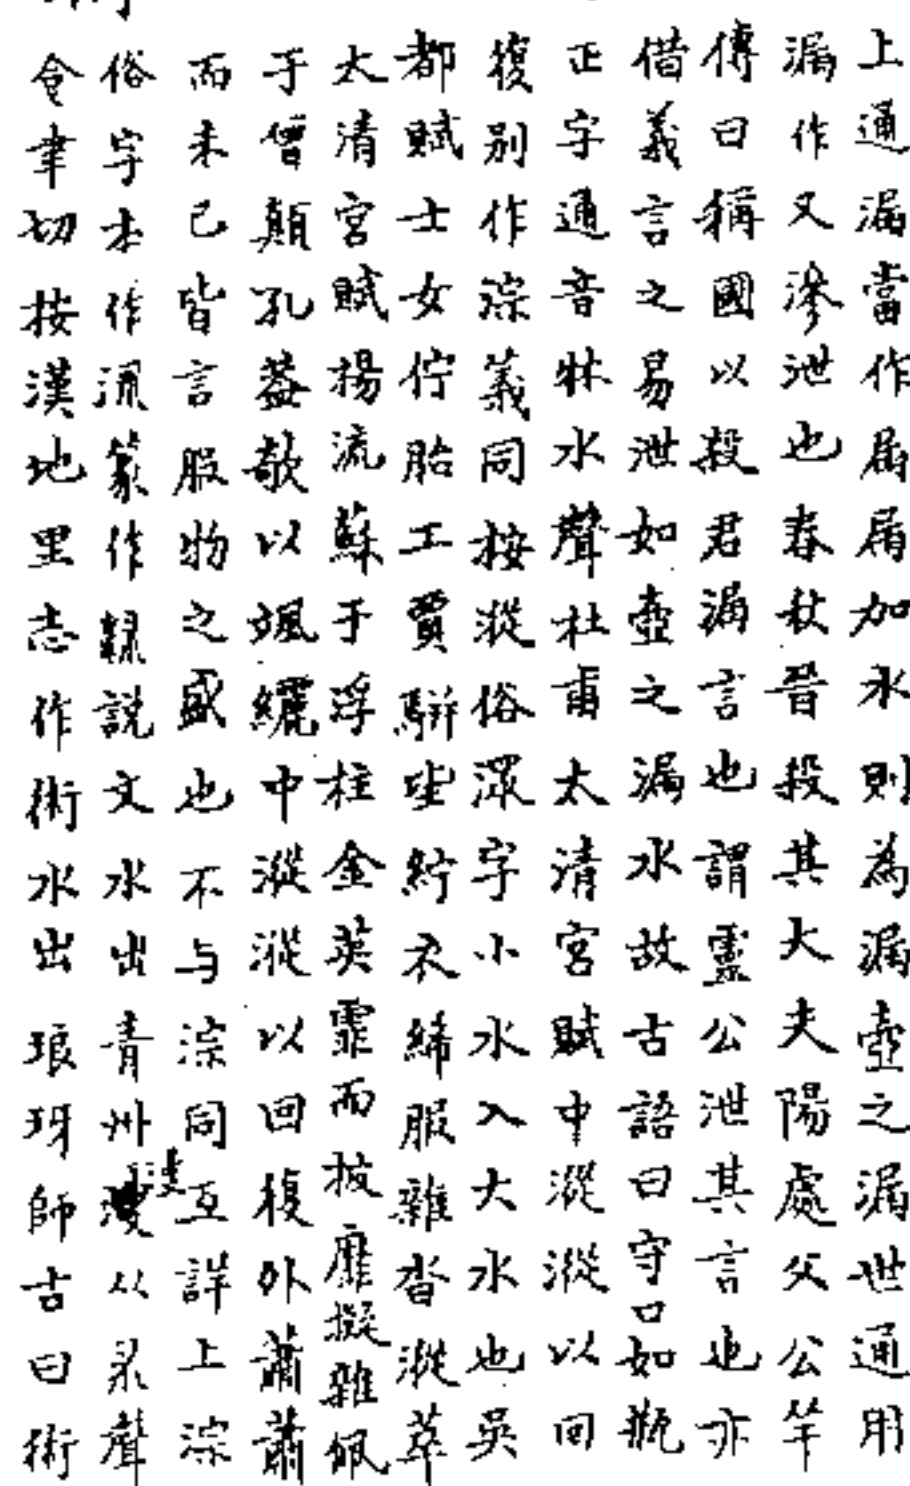 上通漏當作屚屚加水則為漏壺之漏世通用
漏作又滲泄也春秋晉殺其大夫陽處父公羊
傳曰稱國以殺君漏言也謂靈公泄其言也亦
借義言之易泄如壺之漏水故古語曰守口如瓶
正字通音牀水聲杜甫太清宮賦中漎漎以回
復別作淙義同按漎俗潀字小水入大水也吳
都賦士女佇胎工賈駢坒紵衣絺服雜沓漎萃
太清宮賦揚流蘇于浮柱金英霏而披靡擬雜佩
于曾顛孔蓋欹以颯纚中漎漎以回復外蕭蕭
而未已皆言服物之盛也不与淙同互詳上淙
俗字本作篆作說文水出青州浸从聲
令聿切按漢地里志作術水出琅玡師古曰術